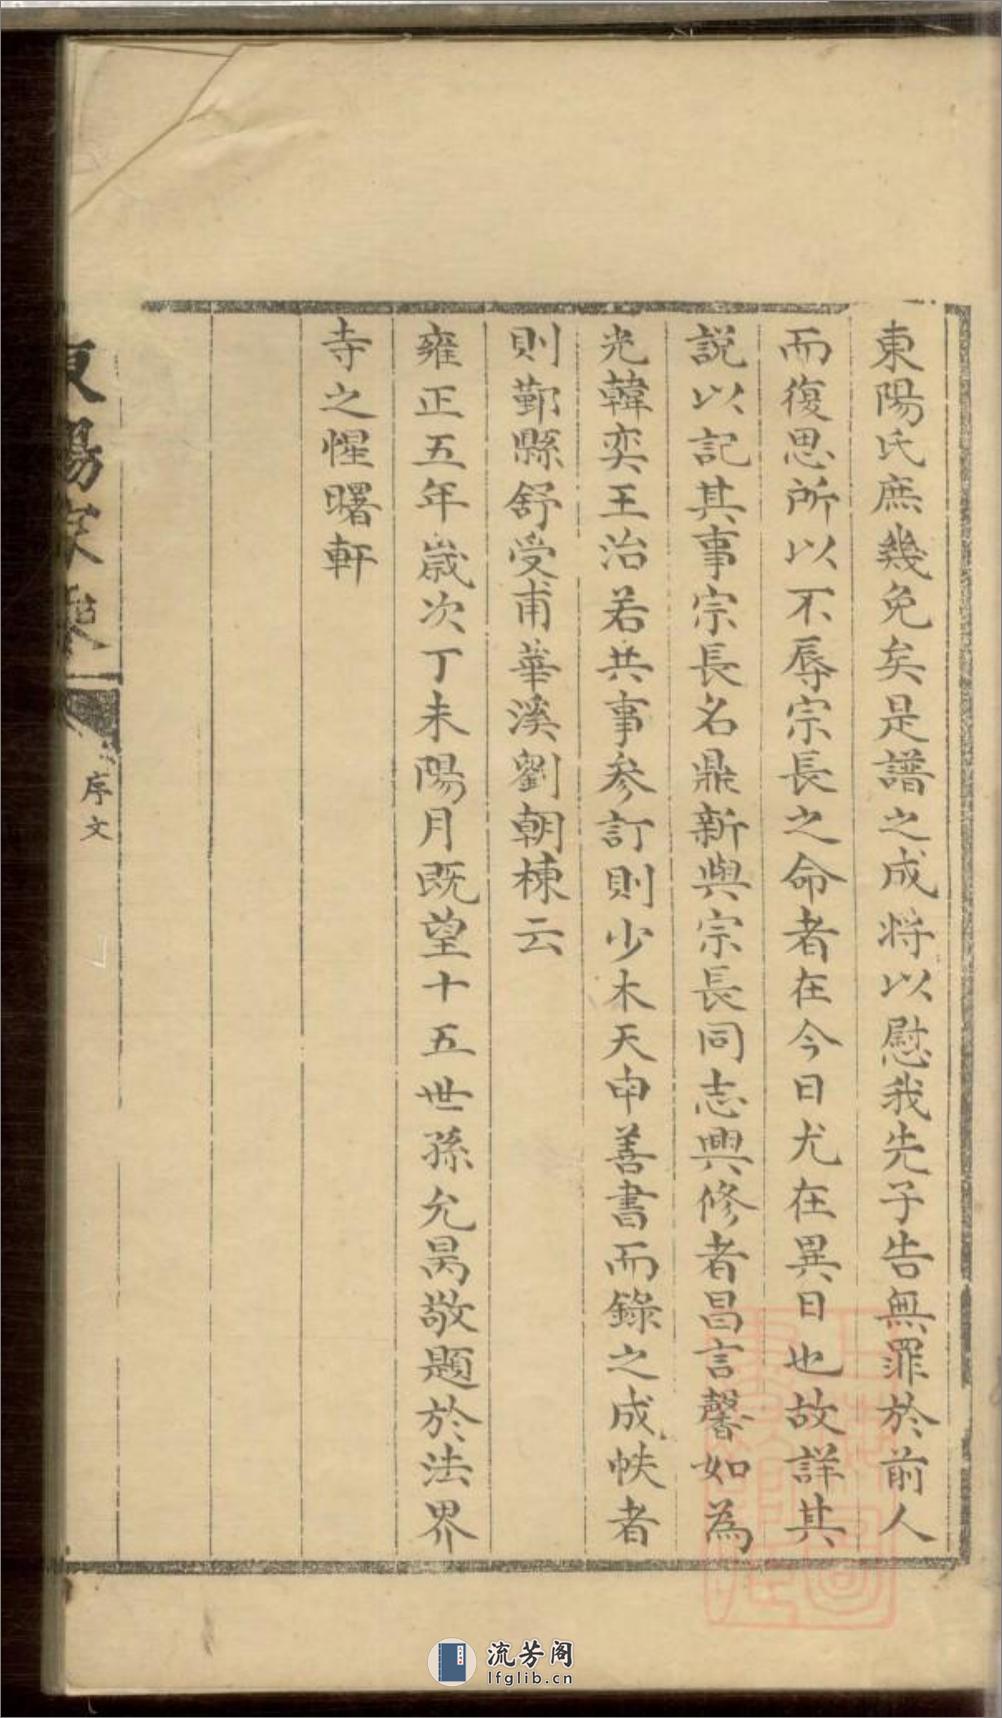 東陽氏庶幾免矣是譜之成將以慰我先子告無罪於前人
而復思所以不辱宗長之命者在今日尤在異日也故詳其
説以記其事宗長名鼎新與宗長同志興修者昌言馨如為
光韓奕王治若共事參訂則少木天申善書而錄之成帙者
則鄞縣舒受甫華溪劉朝棟云
雍正五年歲次丁未陽月既望十五世孫允昺敬題於法界
寺之惺曙軒
東陽家乘
序文
流芳阁
lfglib.cn